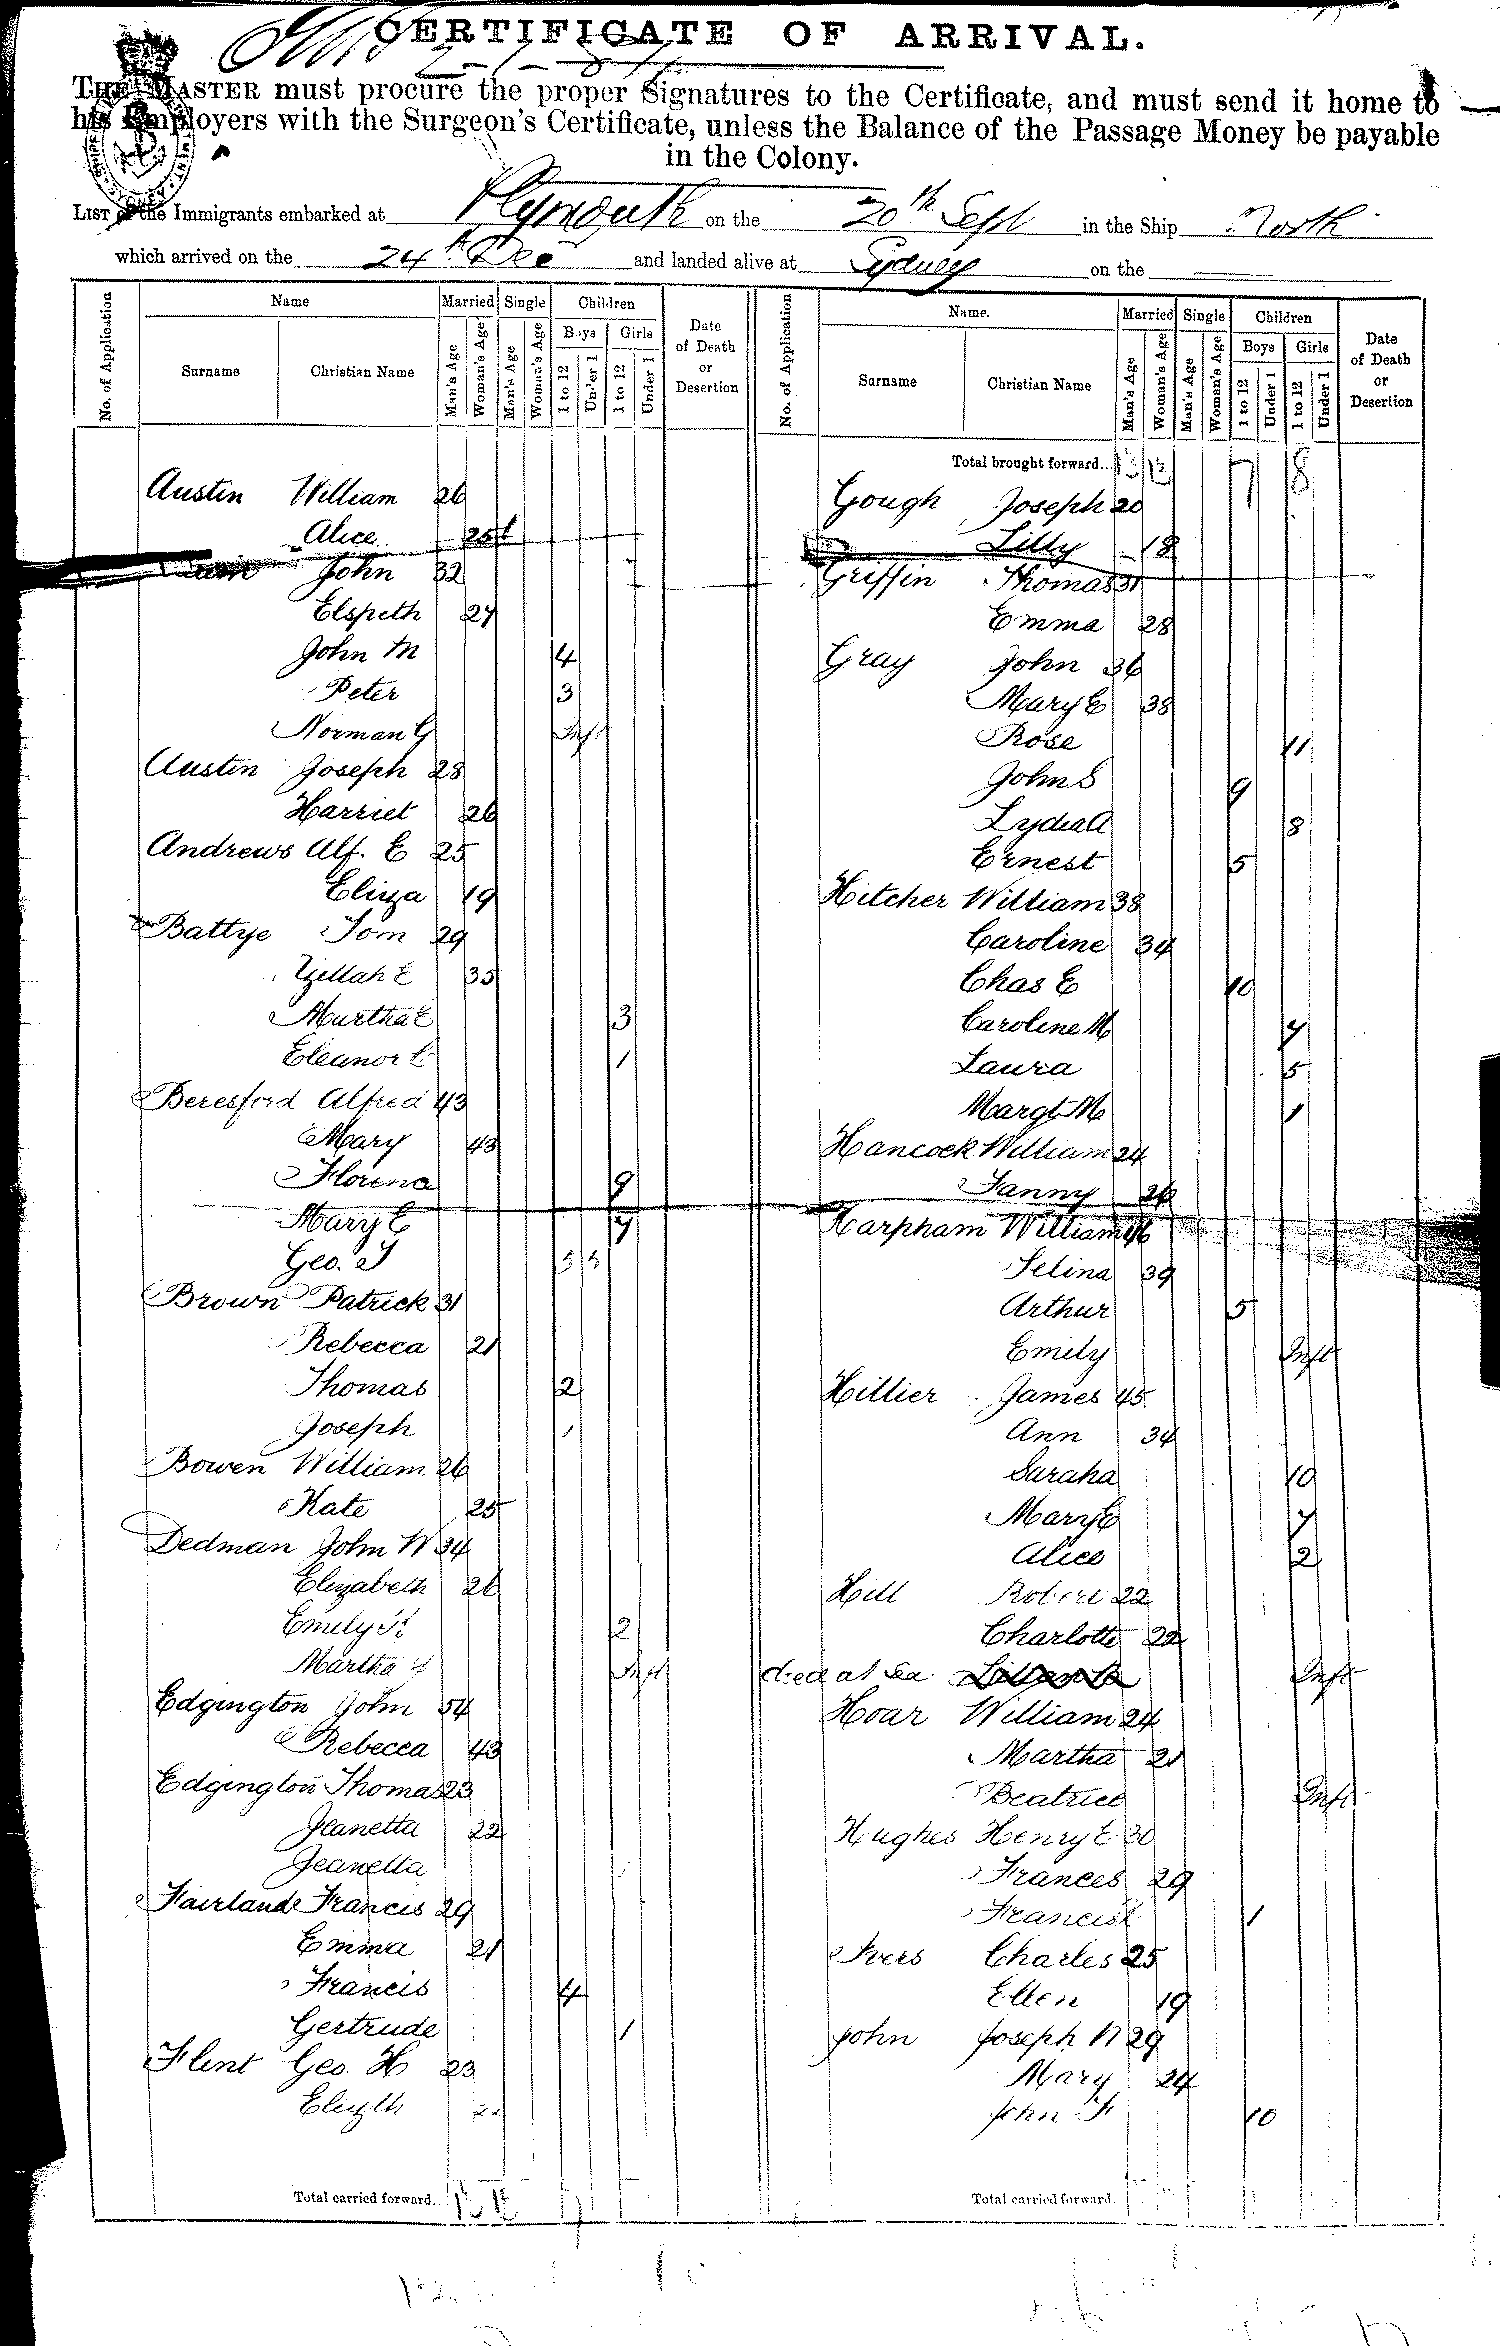 CERTIFICATE OF ARRIVAL.
THE MASTER must procure the proper Signatures to the Certificate, and must send it home to
his Employers with the Surgeon's Certificate, unless the Balance of the Passage Money be payable
in the Colony.
LIST of the Immigrants embarked at Plymouth on the 20th Sept in the Ship North
which arrived on the 24th Dec and landed alive at Sydney on the
No. of Application Name Married Single Children Date of Death or Desertion
Surname Christian Name Man's Age Woman's Age Man's Age Woman's Age Boys Girls
1 to 12 Under 1 1 to 12 Under 1
Austin William 26
Alice 25
John 32
Elspeth 27
John M 4
Peter 3
Norman G Inft
Austin Joseph 28
Harriet 26
Andrews Alf. E 25
Eliza 19
Battye Tom 29
Zillah E 35
Martha E 3
Eleanor 1
Beresford Alfred 43
Mary 43
Florence 9
Mary E 7
Geo. T
Brown Patrick 31
Rebecca 21
Thomas 2
Joseph 1
Bowen William 26
Kate 25
Dedman John W 34
Elizabeth 26
Emily 2
Martha Inft
Edgington John 54
Rebecca 43
Edgington Thomas 23
Jeanetta 22
Jeanetta
Fairland Francis 29
Emma 21
Francis 4
Gertrude 1
Flent Geo. H 23
Elizth
Total carried forward.
No. of Application Name. Married Single Children Date of Death or Desertion
Surname Christian Name Man's Age Woman's Age Man's Age Woman's Age Boys Girls
1 to 12 Under 1 1 to 12 Under 1
Total brought forward... 7 8
Gough Joseph 20
Lilly 18
Griffin Thomas 31
Emma 28
Gray John 36
Mary E 38
Rose 11
John S 9
Lydia A 8
Ernest 5
Hitcher William 38
Caroline 34
Chas E 10
Caroline M 7
Laura 5
Margt M 1
Hancock William 24
Fanny 26
Harpham William 46
Selina 39
Arthur 5
Emily Inft
Hillier James 45
Ann 34
Saraha 10
Mary E 7
Alice 2
Hill Robert 22
Charlotte 22
died at sea Inft
Hoar William 24
Martha 21
Beatrice Inft
Hughes Henry E 30
Frances 29
Francis 1
Ivers Charles 25
Ellen 19
John Joseph N 29
Mary 24
John F 10
Total carried forward.